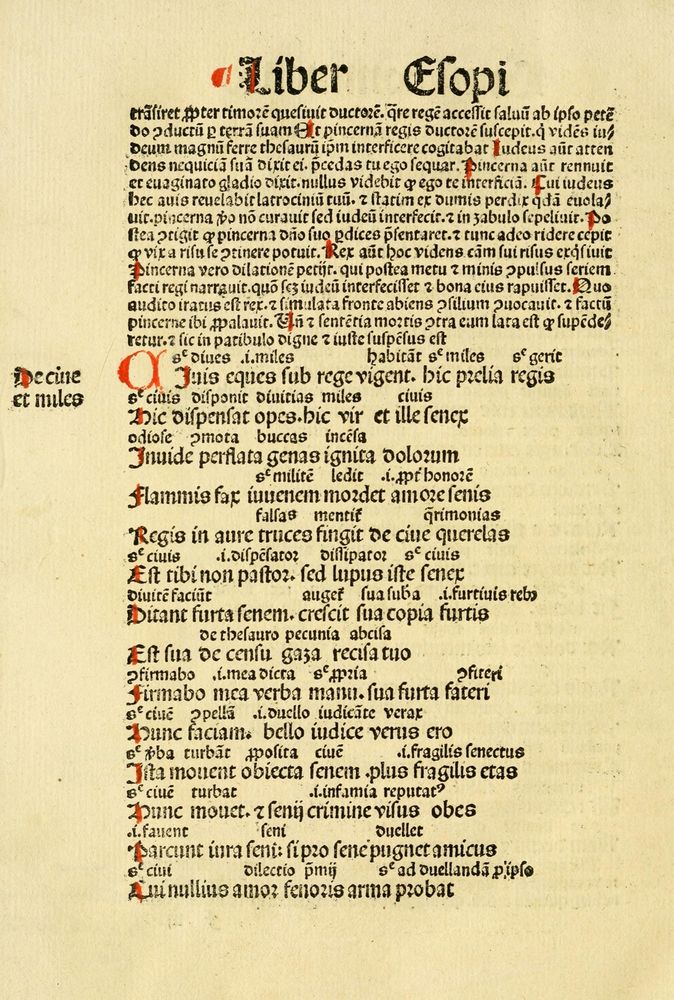 Liber Esopi
trãsiret ꝓpter timorẽ quesiuit ductorẽ. q̃re regẽ accessit saluũ ab ipso petẽ
do ꝯductũ ꝑ terrã suam Et pincernã regis ductorẽ suscepit. q̇ vidẽs iu⸗
deum magnũ ferre thesaurũ ip̃m interficere cogitabat Iudeus aũt atten
dens nequiciã suã dixit ei. p̃cedas tu ego sequar. Pincerna aũt rennuit
et euaginato gladio dixit. nullus videbit ꝙ ego te interficiã. Cui iudeus
hec auis reuelabit latrociniũ tuũ. ⁊ statim ex dumis perdix q̃dã euola⸗
uit. pincerna ꝟo nõ curauit sed iudeũ interfecit. ⁊ in zabulo sepeliuit. Po
stea ꝯtigit ꝙ pincerna dño suo ꝑdices p̃sentaret. ⁊ tunc adeo ridere cepit
ꝙ vix a risu se ꝯtinere potuit. Rex aũt hoc videns cãm sui risus exq̇siuit
Pincerna vero dilationẽ petijt. qui postea metu ⁊ minis ꝯpulsus seriem
facti regi narrauit. quõ scꝫ iudeũ interfecisset ⁊ bona eius rapuisset. Quo
audito iratus est rex. ⁊ simulata fronte abiens ꝯsilium ꝯuocauit. ⁊ factũ
pincerne ibi ꝓpalauit. Uñ ⁊ sentẽtia mortis ꝯtra eum lata est ꝙ supẽde⸗
retur. ⁊ sic in patibulo digne ⁊ iuste suspẽsus est
sᶜ diues .i. miles habitãt sᶜ miles sᶜ gerit
De ciue
et miles
Ciuis eques sub rege vigent. hic prelia regis
sᶜ ciuis disponit diuitias miles ciuis
Hic dispensat opes. hic vir et ille senex
odiose ꝯmota buccas incẽsa
Inuide perflata genas ignita dolorum
sᶜ militẽ ledit .i. ꝓpt̃ honorẽ
Flammis fax iuuenem mordet amore senis
falsas mentit᷑ q̃rimonias
Regis in aure truces fingit de ciue querelas
sᶜ ciuis .i. dispẽsator dissipator sᶜ ciuis
Est tibi non pastor. sed lupus iste senex
diuitẽ faciũt auget᷑ sua suba .i. furtiuis rebꝰ
Ditant furta senem. crescit sua copia furtis
de thesauro pecunia abcisa
Est sua de censu gaza recisa tuo
ꝯfirmabo .i. mea dicta sᶜ ꝓpria ꝯfiteri
Firmabo mea verba manu. sua furta fateri
sᶜ ciuẽ ꝯpellã .i. duello iudicãte verax
Hunc faciam. bello iudice verus ero
sᶜ ꝟba turbãt ꝓposita ciuẽ .i. fragilis senectus
Ista mouent obiecta senem. plus fragilis etas
sᶜ ciuẽ turbat .i. infamia reputatꝰ
Hunc mouet. ⁊ senij crimine visus obes
.i. fauent seni duellet
Parcunt iura seni: si pro sene pugnet amicus
sᶜ ciui dilectio p̃mij sᶜ ad duellandã ꝓ ipso
Cui nullius amor fenoris arma probat